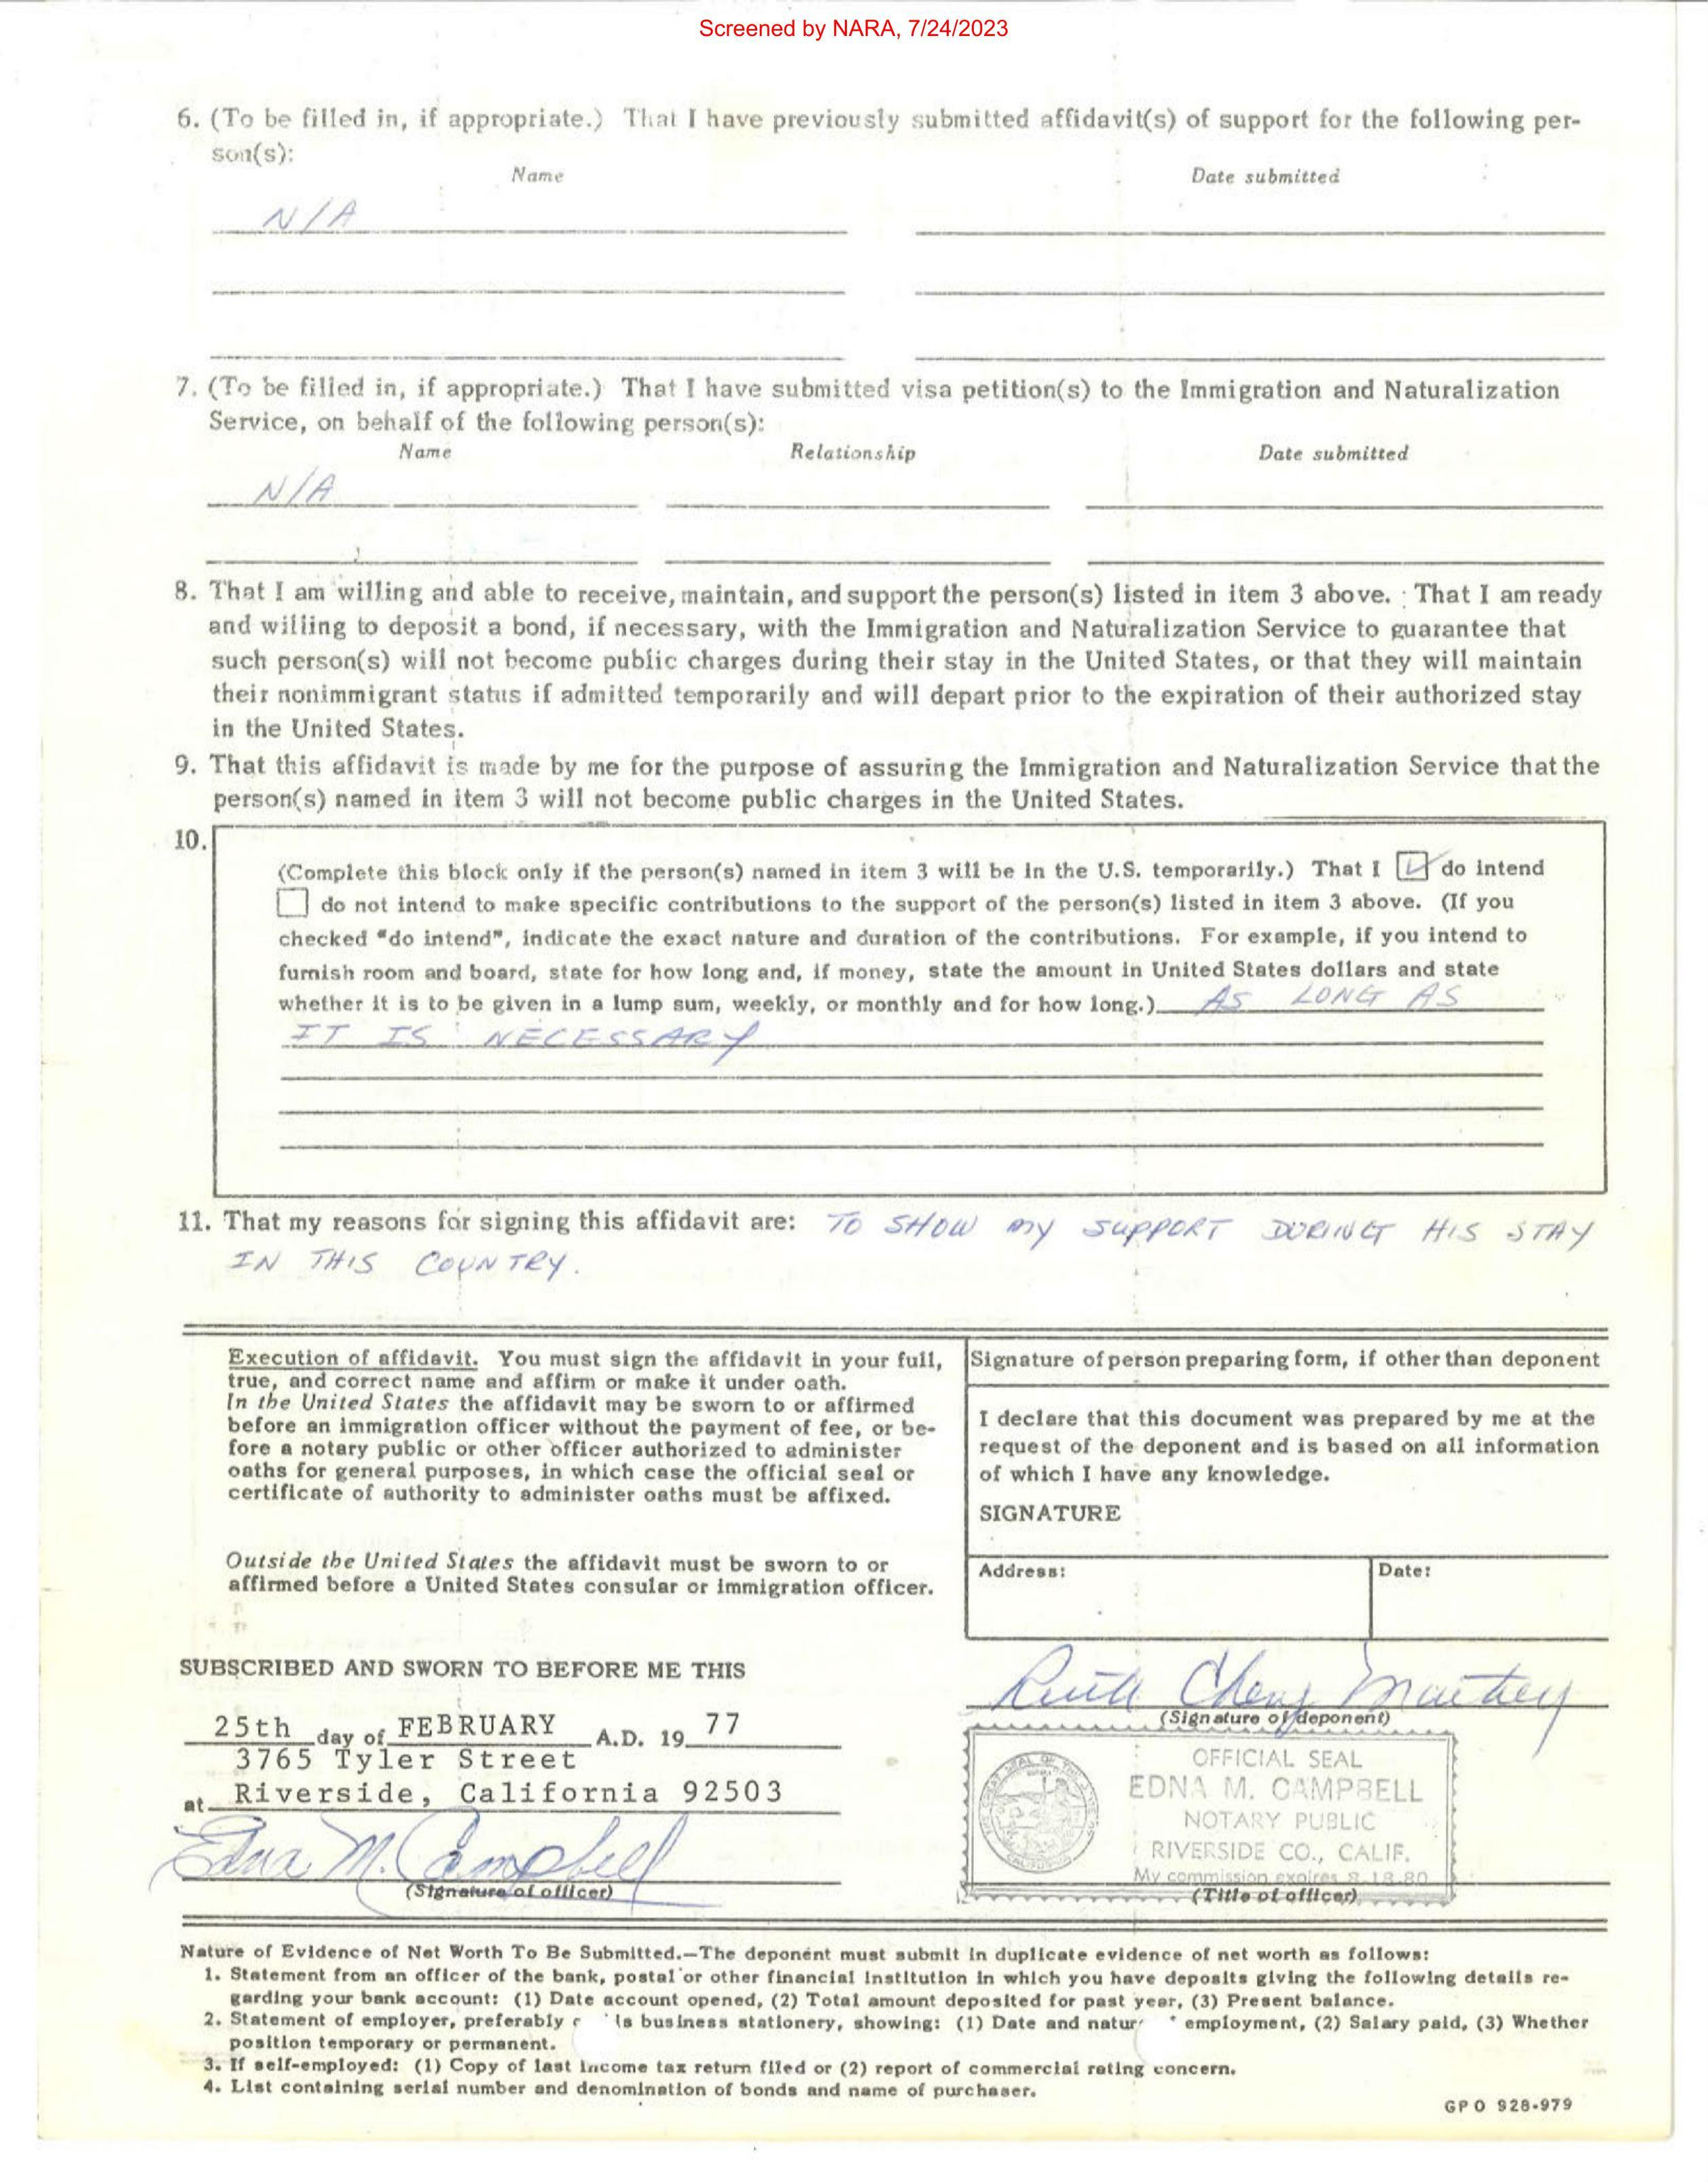 Screened by NARA, 7/24/2023
6. (To be filled in, if appropriate.) That I have previously submitted affidavit(s) of support for the following per-
son(s):
Name Date submitted
N/A
7. (To be filled in, if appropriate.) That I have submitted visa petition(s) to the Immigration and Naturalization
Service, on behalf of the following person(s):
Name Relationship Date submitted
N/A
8. That I am willing and able to receive, maintain, and support the person(s) listed in item 3 above. That I am ready
and willing to deposit a bond, if necessary, with the Immigration and Naturalization Service to guarantee that
such person(s) will not become public charges during their stay in the United States, or that they will maintain
their nonimmigrant status if admitted temporarily and will depart prior to the expiration of their authorized stay
in the United States.
9. That this affidavit is made by me for the purpose of assuring the Immigration and Naturalization Service that the
person(s) named in item 3 will not become public charges in the United States.
10.
(Complete this block only if the person(s) named in item 3 will be in the U.S. temporarily.) That I do intend
do not intend to make specific contributions to the support of the person(s) listed in item 3 above. (If you
checked "do intend", indicate the exact nature and duration of the contributions. For example, if you intend to
furnish room and board, state for how long and, if money, state the amount in United States dollars and state
whether it is to be given in a lump sum, weekly, or monthly and for how long.) AS LONG AS
IT IS NECESSARY
11. That my reasons for signing this affidavit are: TO SHOW MY SUPPORT DURING HIS STAY
IN THIS COUNTRY.
Execution of affidavit. You must sign the affidavit in your full,
true, and correct name and affirm or make it under oath.
In the United States the affidavit may be sworn to or affirmed
before an immigration officer without the payment of fee, or be-
fore a notary public or other officer authorized to administer
oaths for general purposes, in which case the official seal or
certificate of authority to administer oaths must be affixed.
Outside the United States the affidavit must be sworn to or
affirmed before a United States consular or immigration officer.
Signature of person preparing form, if other than deponent
I declare that this document was prepared by me at the
request of the deponent and is based on all information
of which I have any knowledge.
SIGNATURE
Address: Date:
SUBSCRIBED AND SWORN TO BEFORE ME THIS
25th day of FEBRUARY A.D. 19 77
3765 Tyler Street
at Riverside, California 92503
Edna M. Campbell
(Signature of officer)
(Signature of deponent)
OFFICIAL SEAL
EDNA M. CAMPBELL
NOTARY PUBLIC
RIVERSIDE CO., CALIF.
My commission expires 8-18-80
(Title of officer)
Nature of Evidence of Net Worth To Be Submitted.—The deponent must submit in duplicate evidence of net worth as follows:
1. Statement from an officer of the bank, postal or other financial institution in which you have deposits giving the following details re-
garding your bank account: (1) Date account opened, (2) Total amount deposited for past year, (3) Present balance.
2. Statement of employer, preferably is business stationery, showing: (1) Date and natur employment, (2) Salary paid, (3) Whether
position temporary or permanent.
3. If self-employed: (1) Copy of last income tax return filed or (2) report of commercial rating concern.
4. List containing serial number and denomination of bonds and name of purchaser.
GPO 928-979